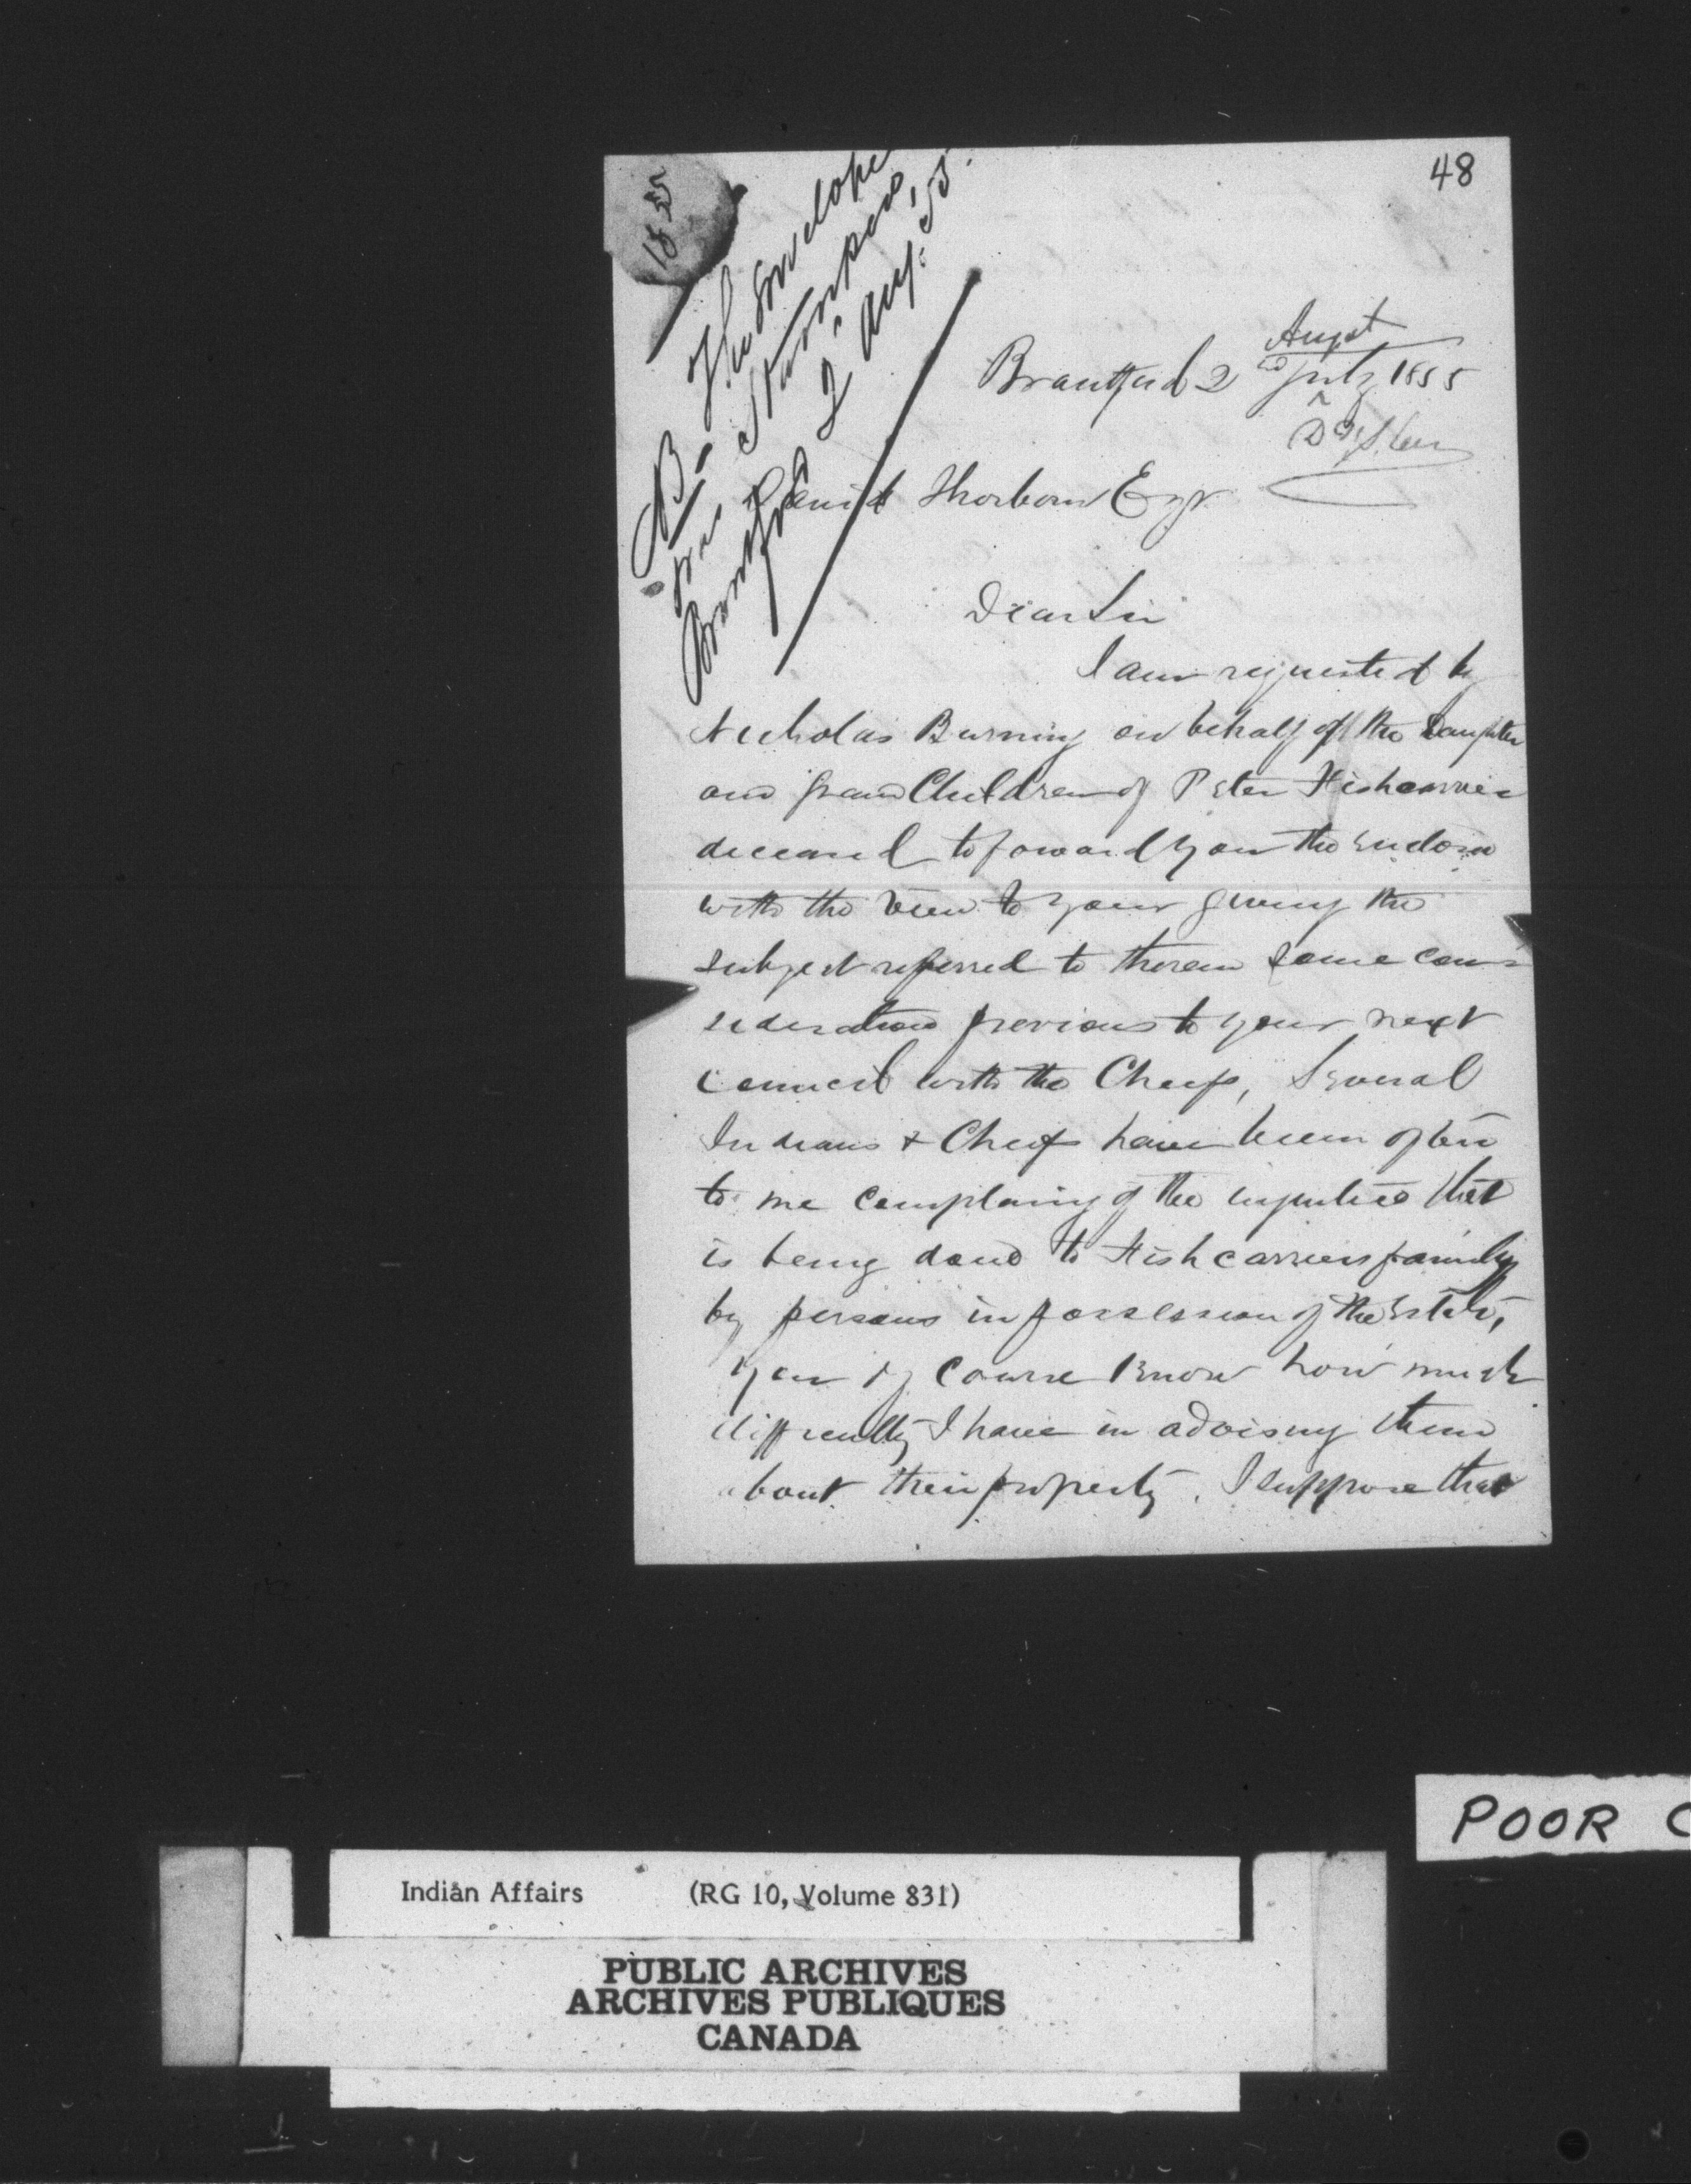 48
1855
NB. The Envelope
was Stamped,
Brantford 2 Augt. 55.
Augt
Brantford 2nd July 1855
David Thorburn Esqr
Dear Sir
I am requested by
Nicholas Burning on behalf of the Daughter
and grand Children of Peter Fishcarrier
deceased to foward you the enclose
with the view to your giving the
subject referred to therein some con-
sideration previous to your next
council with the Cheifs, Several
Indians & Cheifs have been often
to me complaing of the injustice that
is being done to Fishcarriers family
by persons in possession of the Estate,
you of course Know how much
difficulty I have in advising them
about their property. I suppose that
POOR C
Indian Affairs (RG 10, Volume 831)
PUBLIC ARCHIVES
ARCHIVES PUBLIQUES
CANADA